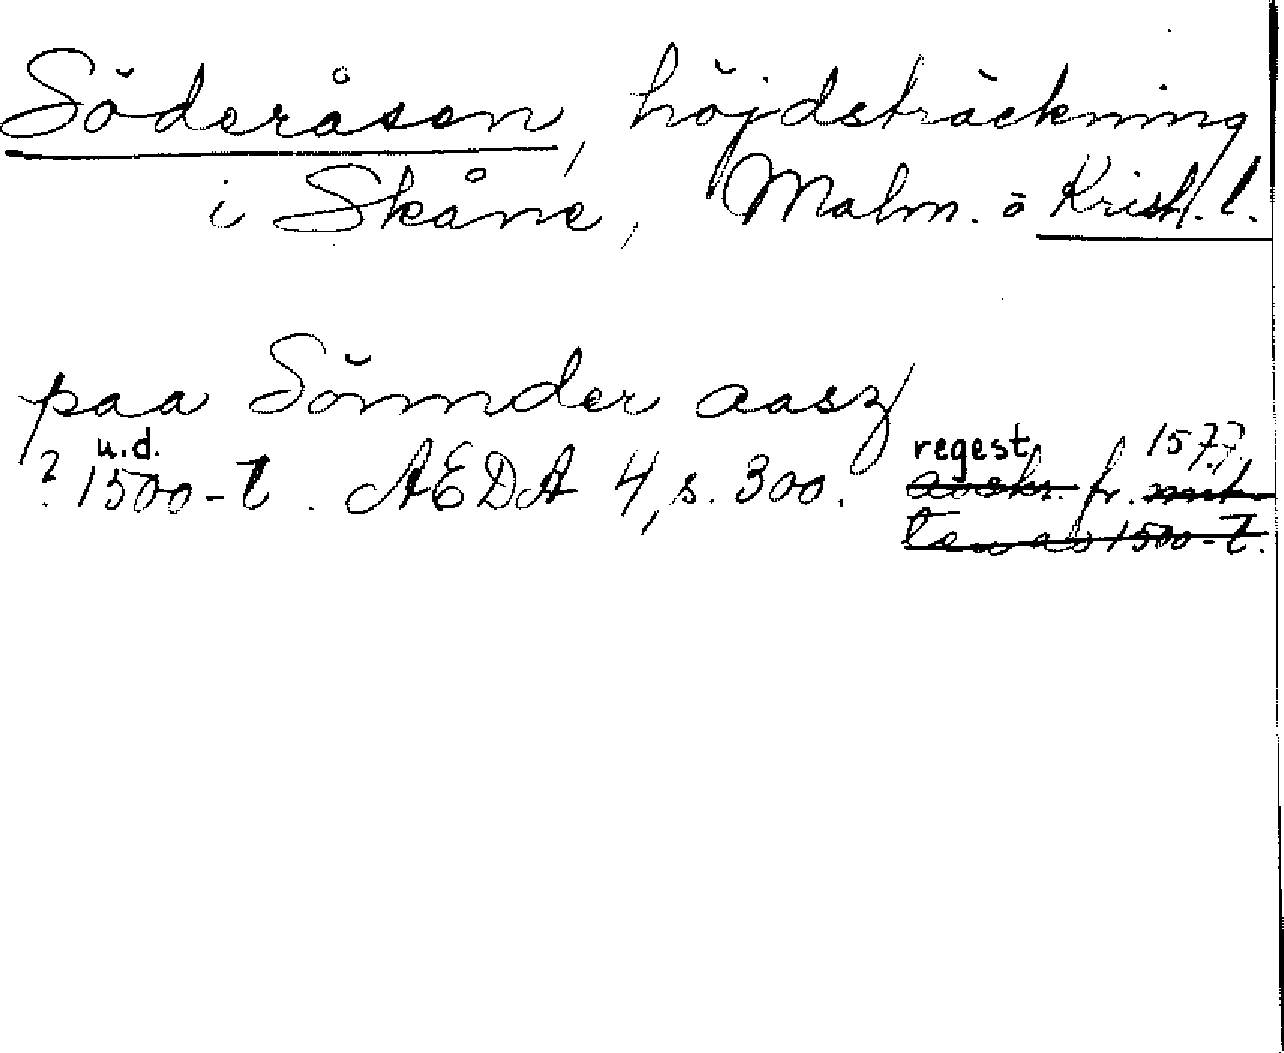 Söderåsen, höjdsträckning
i Skåne, Malm. o Krist. l.
paa Sönnder aasz
u.d. regest 1577,
? 1500-t. AEDA 4, s. 300. avskr. fr.
1500-t.